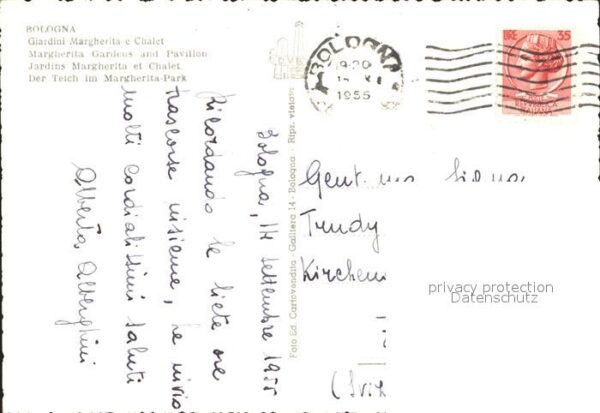 BOLOGNA
Giardini Margherita e Chalet
Margherita Gardens and Pavillon
Jardins Margherita et Chalet
Der Teich im Margherita-Park
BOLOGNA
19-20
1955
LIRE 35
Bologna, 14 settembre 1955
Ricordando le liete ore
trascorse insieme, Le invio
molti cordialissimi saluti
Alberta Alberghini
Foto Ed. Cartovendita - Galliera 14 - Bologna - Ripr. vietata
Gent.ma Signa
Trudy
Kirchen
privacy protection
Datenschutz